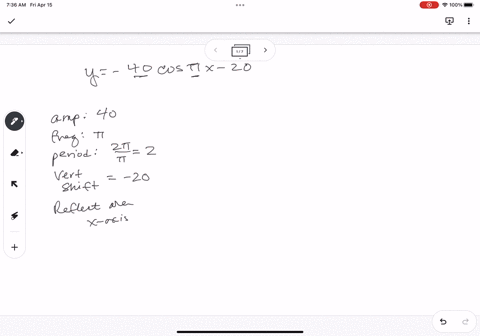 7:36 AM Fri Apr 15
100%
1/1
y = - 40 cos π x - 20
amp: 40
freq: π
period: 2π/π = 2
Vert shift = -20
Reflect over
x-axis